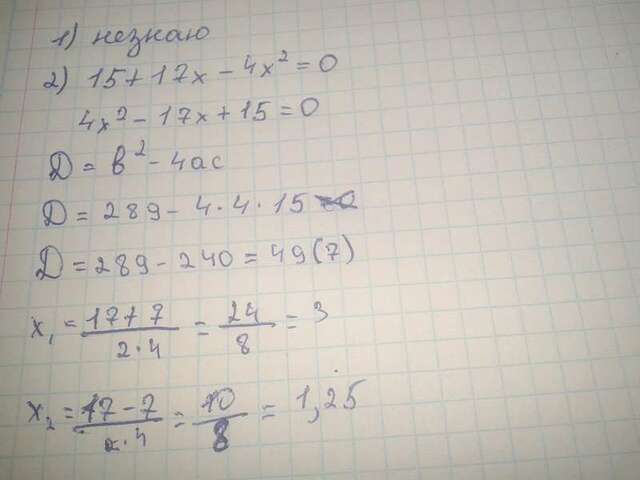 1) незнаю
2) 15 + 17x - 4x² = 0
4x² - 17x + 15 = 0
Д = в² - 4ac
Д = 289 - 4 · 4 · 15
Д = 289 - 240 = 49 (7)
x₁ = (17 + 7)/(2 · 4) = 24/8 = 3
x₂ = (17 - 7)/(2 · 4) = 10/8 = 1,25